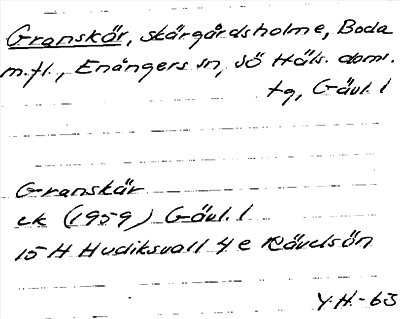 Granskär, skärgårdsholme, Boda
m.fl., Enångers sn, sö Häls. doms.
tg, Gävl. l
Granskär
ek (1959) Gävl. l
15 H Hudiksvall 4 e Rävelsön
Y.H.-63